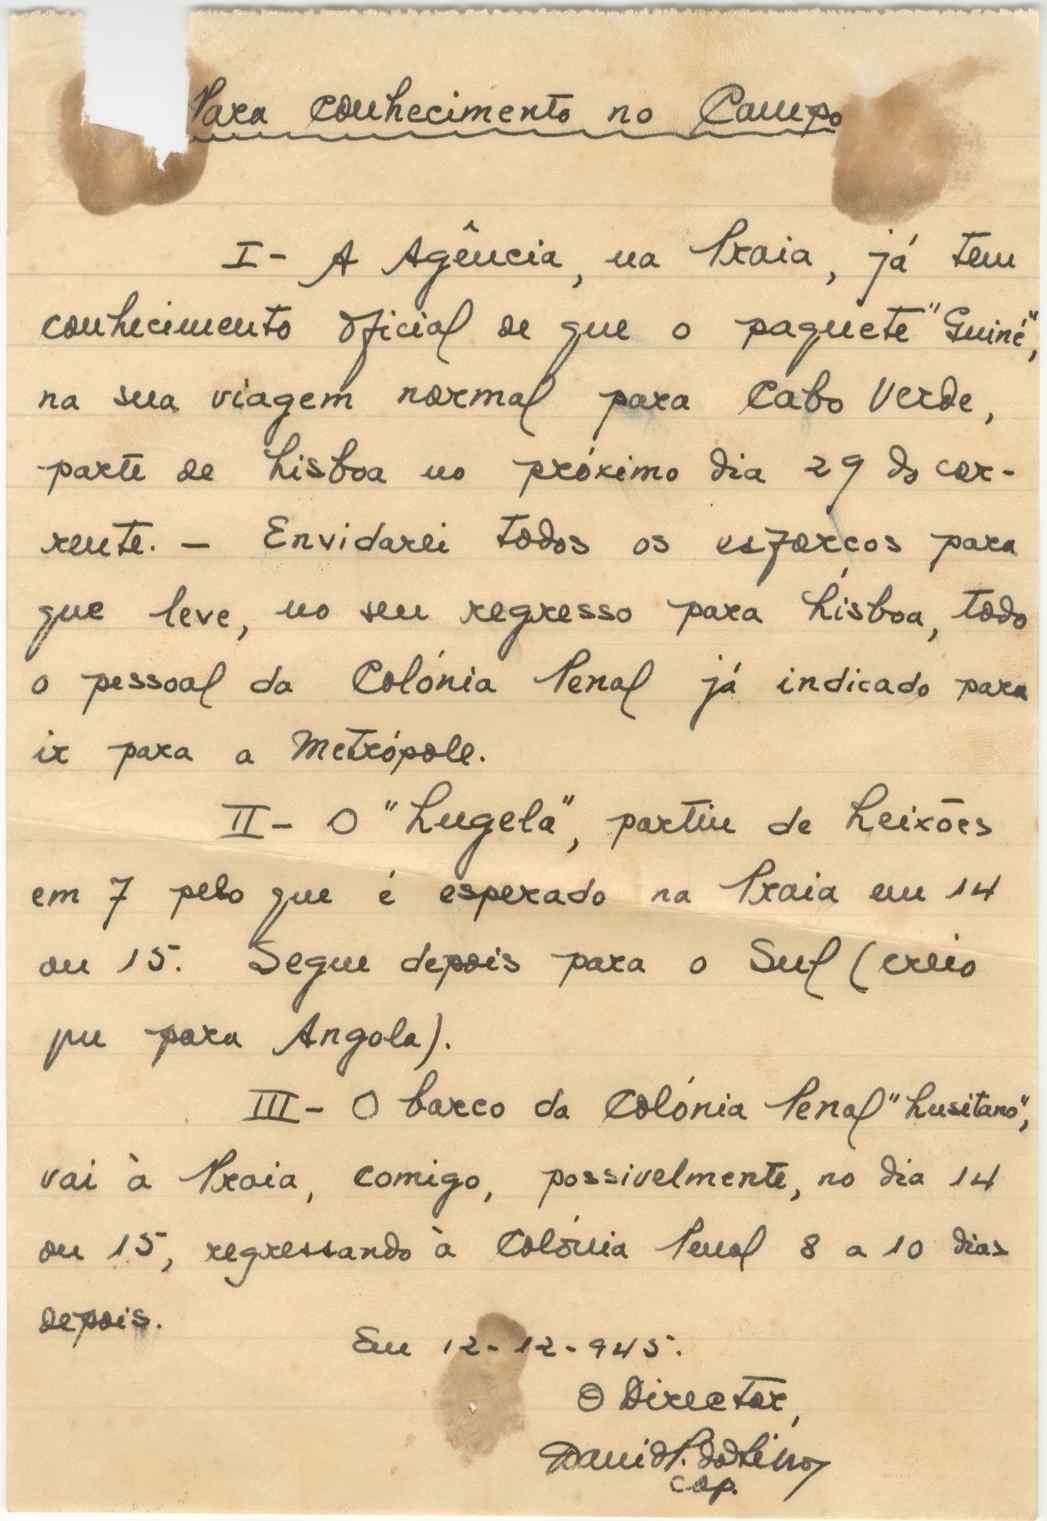 Para conhecimento no Campo
I - A Agência, na Praia, já tem
conhecimento oficial de que o paquete "Guiné",
na sua viagem normal para Cabo Verde,
parte de Lisboa no próximo dia 29 do cor-
rente. - Envidarei todos os esforços para
que leve, no seu regresso para Lisboa, todo
o pessoal da Colónia Penal já indicado para
ir para a Metrópole.
II - O "Lugela", partiu de Leixões
em 7 pelo que é esperado na Praia em 14
ou 15. Segue depois para o Sul (creio
que para Angola).
III - O barco da Colónia Penal "Lusitano",
vai à Praia, comigo, possivelmente, no dia 14
ou 15, regressando à Colónia Penal 8 a 10 dias
depois.
Em 12-12-945.
O Director,
David P. dos
cap.